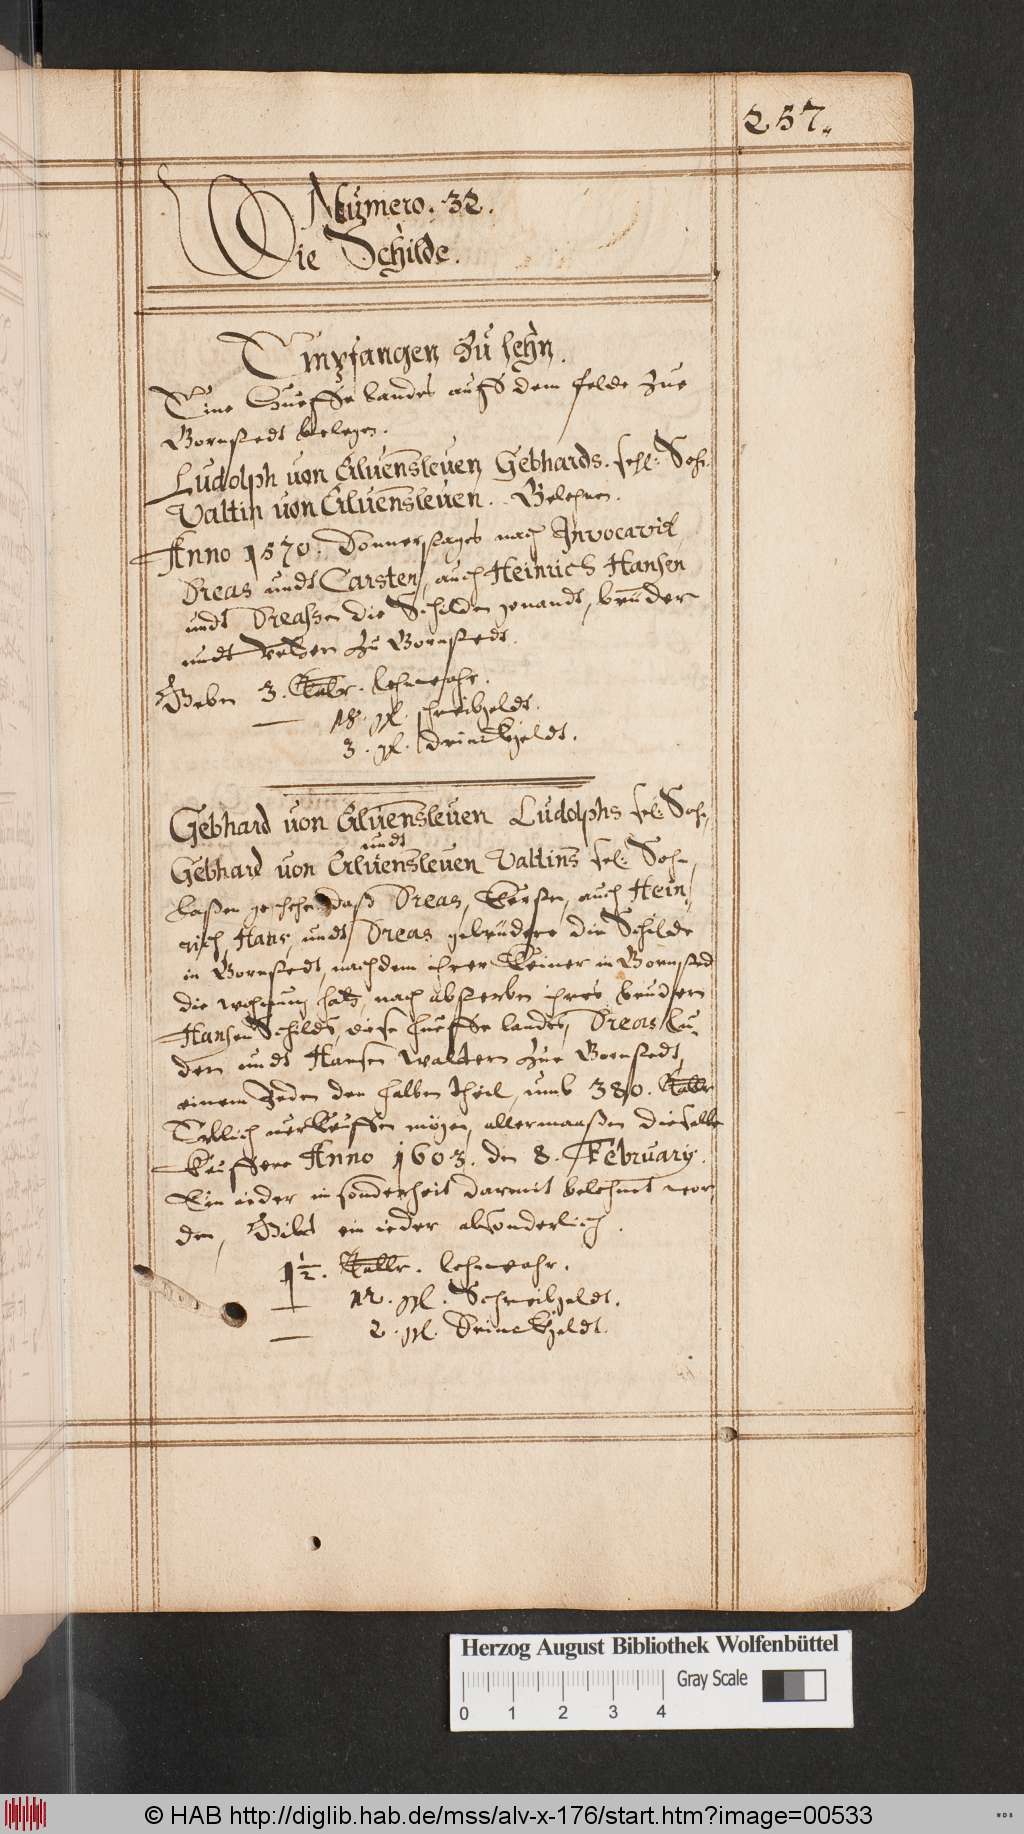 257.
Numero. 32.
Die Schilde.
Empfangen zu lehn.
Eine Hueffe landes auffs dem felde zue
Bornstedt belegen.
Ludolph von Alvensleven Gebhards. sehl: Sohn
Valtin von Alvensleven. Belehnen.
Anno 1570. Donnerstages nach Invocavit
Dreas undt Carsten, auch Heinrich Hansen
undt Dreassen die Schilden genandt, brüder
undt vettern zu Bornstedt.
Geben 3. Tahlr. lehnwahr.
— 18. gl. schreibgeldt.
3. gl. drinckgeldt.
Gebhard von Alvensleven Ludolphs sel: Sohn,
undt
Gebhard von Alvensleven Valtins sel: Sohn,
laßen geschehen daß Dreas, Kersten, auch Hein,
rich, Hans undt Dreas gebrüdere die Schilde
in Bornstedt, nachdem ihrer Keiner in Bornsted
die wohnung hatt, nach absterben ihres brudern
Hansen Schildes, diese hueffe landes, Dreas
den undt Hansen Waltern zue Bornstedt,
einem Jeden den halben theil, umb 380. Tallr
Erblich verkeuffen mögen, allermaaßen dieselbe
Keuffere Anno 1603. den 8. February.
Ein ieder in sonderheit darmit belehnt wor,
den, Gibt ein ieder absonderlich.
1 1/2. Tallr. lehnwahr.
— 12. gl. Schreibgeldt.
— 2. gl. Drinckgeldt.
Herzog August Bibliothek Wolfenbüttel
Gray Scale
0 1 2 3 4
© HAB http://diglib.hab.de/mss/alv-x-176/start.htm?image=00533